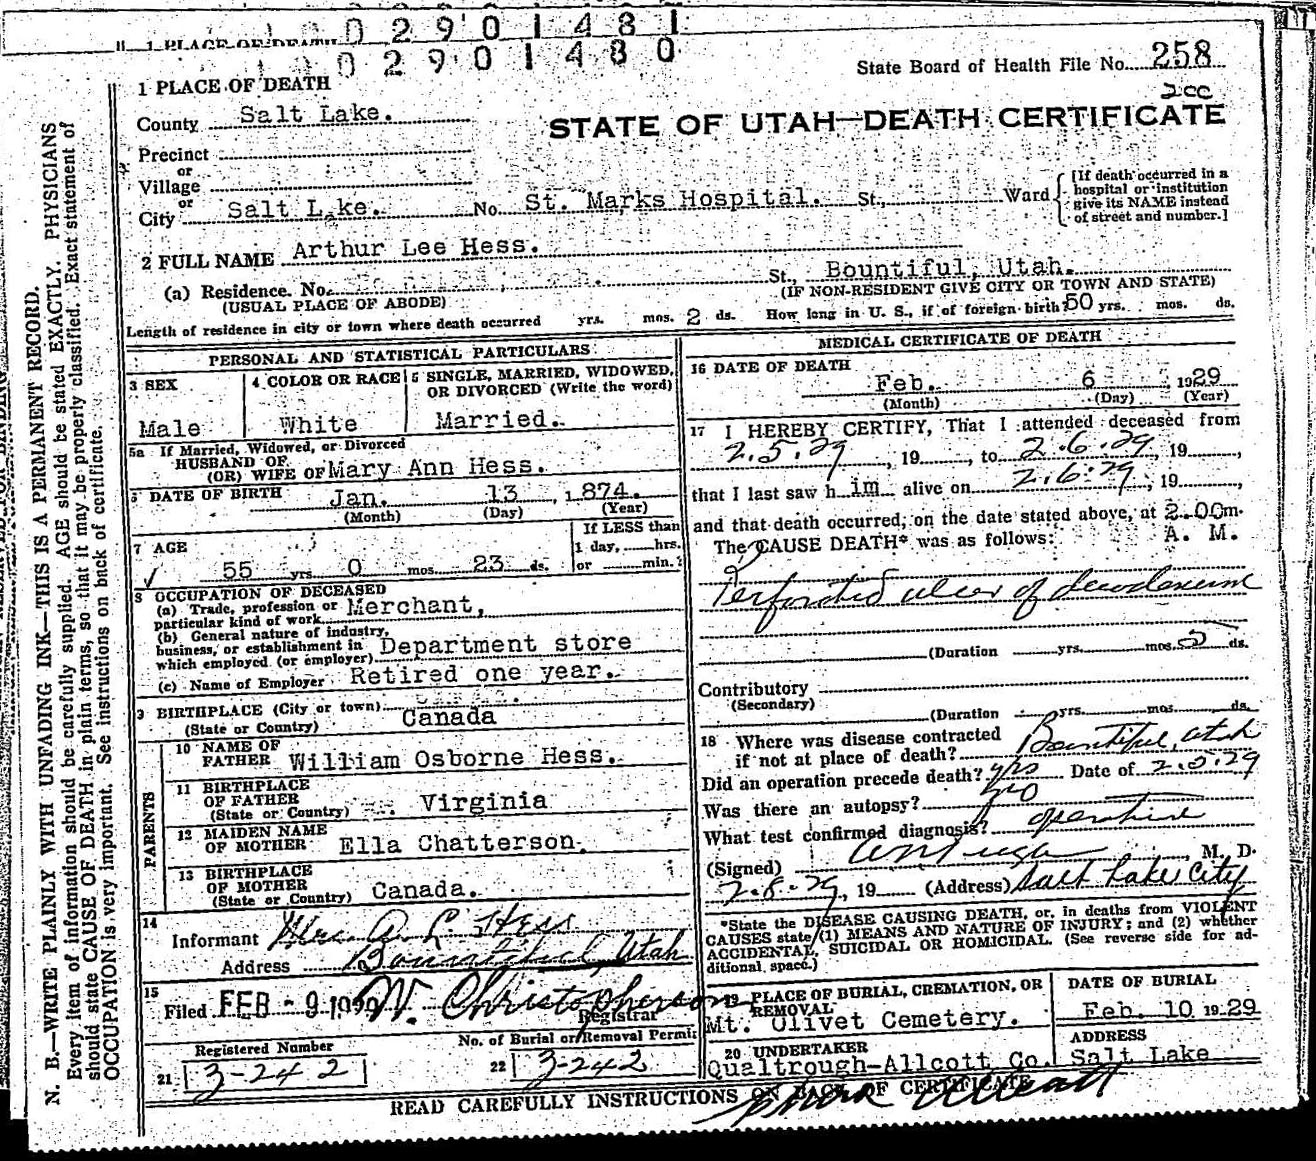 0 2 9 0 1 4 8 1
1 PLACE OF DEATH
0 2 9 0 1 4 8 0
State Board of Health File No. 258
2cc
STATE OF UTAH—DEATH CERTIFICATE
1 PLACE OF DEATH
County Salt Lake.
Precinct
or
Village
or
City Salt Lake. No. St. Marks Hospital. St., Ward
[If death occurred in a
hospital or institution
give its NAME instead
of street and number.]
2 FULL NAME Arthur Lee Hess.
(a) Residence. No. St., Bountiful, Utah.
(USUAL PLACE OF ABODE) (IF NON-RESIDENT GIVE CITY OR TOWN AND STATE)
Length of residence in city or town where death occurred yrs. mos. 2 ds. How long in U. S., if of foreign birth? 50 yrs. mos. ds.
PERSONAL AND STATISTICAL PARTICULARS
3 SEX
Male
4 COLOR OR RACE
White
5 SINGLE, MARRIED, WIDOWED,
OR DIVORCED (Write the word)
Married.
5a If Married, Widowed, or Divorced
HUSBAND OF
(OR) WIFE OF Mary Ann Hess.
DATE OF BIRTH Jan. 13, 1874.
(Month) (Day) (Year)
7 AGE
55 yrs. 0 mos. 23 ds.
If LESS than
1 day, hrs.
or min.?
8 OCCUPATION OF DECEASED
(a) Trade, profession or
particular kind of work Merchant,
(b) General nature of industry,
business, or establishment in
which employed (or employer) Department store
(c) Name of Employer Retired one year.
9 BIRTHPLACE (City or town)
(State or Country) Canada
PARENTS
10 NAME OF
FATHER William Osborne Hess.
11 BIRTHPLACE
OF FATHER
(State or Country) Virginia
12 MAIDEN NAME
OF MOTHER Ella Chatterson.
13 BIRTHPLACE
OF MOTHER
(State or Country) Canada.
14
Informant Mrs. A. L. Hess
Address Bountiful, Utah
15
Filed FEB - 9 1929 W. Christopherson
Registrar
Registered Number
21 3-242
No. of Burial or Removal Permit
22 3-242
MEDICAL CERTIFICATE OF DEATH
16 DATE OF DEATH
Feb. 6, 1929
(Month) (Day) (Year)
17 I HEREBY CERTIFY, That I attended deceased from
2.5.29, 19, to 2.6.29, 19,
that I last saw him alive on 2.6.29, 19,
and that death occurred, on the date stated above, at 2.00 m.
The CAUSE DEATH* was as follows: A. M.
Perforated ulcer of duodenum
(Duration yrs. mos. 2 ds.
Contributory
(Secondary)
(Duration yrs. mos. ds.
18 Where was disease contracted
if not at place of death? Bountiful, Utah
Did an operation precede death? yes Date of 2.5.29
Was there an autopsy? no
What test confirmed diagnosis? operative
(Signed) M. D.
2-8-29, 19 (Address) Salt Lake City
*State the DISEASE CAUSING DEATH, or, in deaths from VIOLENT
CAUSES state (1) MEANS AND NATURE OF INJURY; and (2) whether
ACCIDENTAL, SUICIDAL OR HOMICIDAL. (See reverse side for ad-
ditional space.)
19 PLACE OF BURIAL, CREMATION, OR
REMOVAL
Mt. Olivet Cemetery.
DATE OF BURIAL
Feb. 10 1929
20 UNDERTAKER
Qualtrough-Allcott Co.
ADDRESS
Salt Lake
READ CAREFULLY INSTRUCTIONS ON BACK OF CERTIFICATE
N. B.—WRITE PLAINLY WITH UNFADING INK—THIS IS A PERMANENT RECORD.
Every item of information should be carefully supplied. AGE should be stated EXACTLY. PHYSICIANS
should state CAUSE OF DEATH in plain terms, so that it may be properly classified. Exact statement of
OCCUPATION is very important. See instructions on back of certificate.